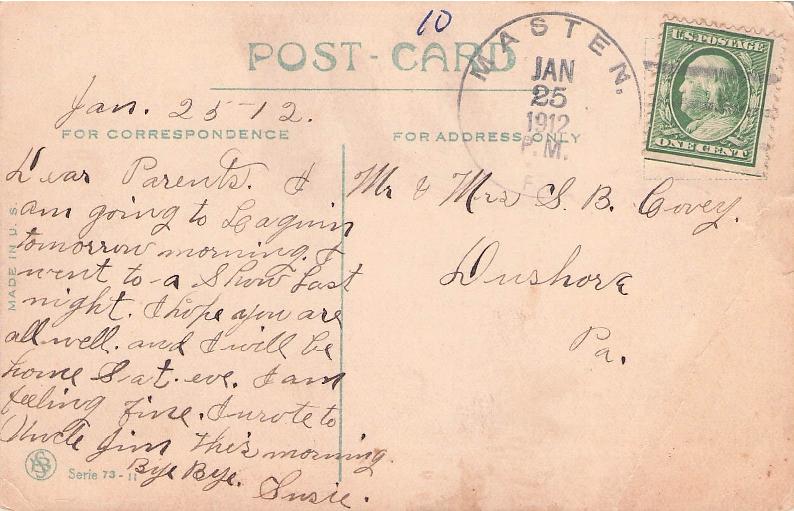 10
POST-CARD
MASTEN.
JAN
25
1912
P.M.
U.S. POSTAGE
ONE CENT
Jan. 25-12.
FOR CORRESPONDENCE
Dear Parents. I
am going to Laquin
tomorrow morning. I
went to a Show Last
night. I hope you are
all well. and I will be
home Sat. eve. I am
feeling fine. I wrote to
Uncle Jim this morning.
Bye Bye.
Susie.
FOR ADDRESS ONLY
Mr & Mrs S. B. Covey.
Dushore
Pa.
MADE IN U.S.
Serie 73-11